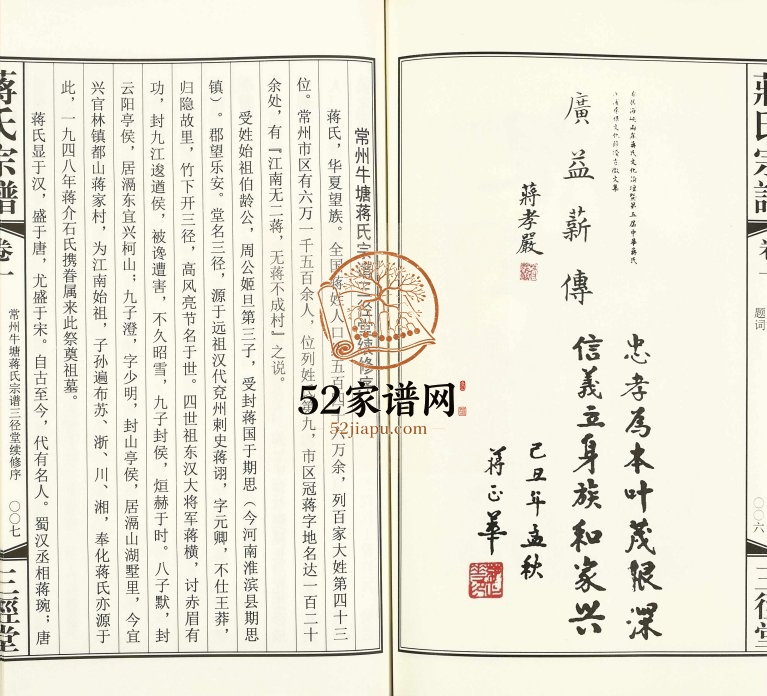 蔣氏宗譜
卷一
题词
〇〇六
三徑堂
廣益薪傳
蔣孝嚴
忠孝爲本叶茂根深
信義立身族和家兴
己丑年孟秋
蒋正華
常州牛塘蒋氏宗谱三径堂续修序
蒋氏，华夏望族。全国蒋姓人口五百四十六万余，列百家大姓第四十三
位。常州市区有六万一千五百余人，位列姓氏第九，市区冠蒋字地名达一百二十
余处，有『江南无二蒋，无蒋不成村』之说。
受姓始祖伯龄公，周公姬旦第三子，受封蒋国于期思（今河南淮滨县期思
镇）。郡望乐安。堂名三径，源于远祖汉代兖州刺史蒋诩，字元卿，不仕王莽，
归隐故里，竹下开三径，高风亮节名于世。四世祖东汉大将军蒋横，讨赤眉有
功，封九江逡遒侯，被谗遭害，不久昭雪，九子封侯，烜赫于时。八子默，封
云阳亭侯，居滆东宜兴柯山；九子澄，字少明，封山亭侯，居滆山湖墅里，今宜
兴官林镇都山蒋家村，为江南始祖，子孙遍布苏、浙、川、湘，奉化蒋氏亦源于
此，一九四八年蒋介石氏携眷属来此祭奠祖墓。
蒋氏显于汉，盛于唐，尤盛于宋。自古至今，代有名人。蜀汉丞相蒋琬；唐
蔣氏宗譜
卷一
常州牛塘蒋氏宗谱三径堂续修序
〇〇七
三徑堂
52家谱网
52jiapu.com